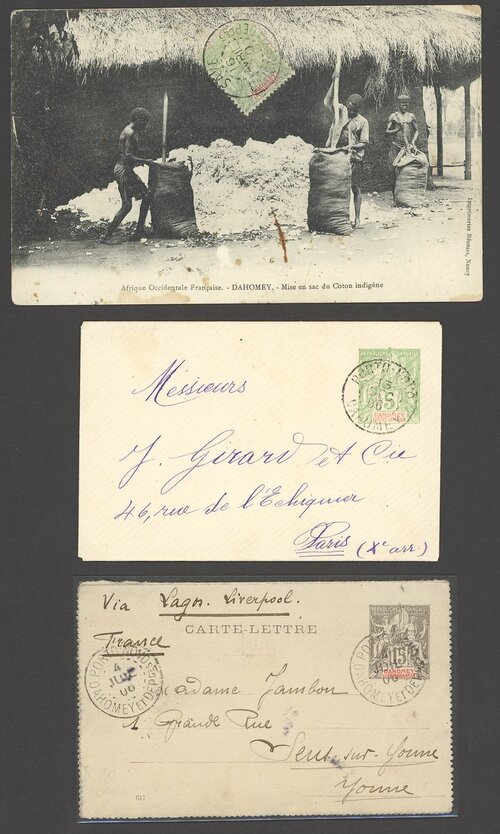 Imprimeries Réunies, Nancy
Afrique Occidentale Française. - DAHOMEY. - Mise en sac du Coton indigène
Messieurs
J. Girard et Cie
46, rue de l'Echiquier
Paris (Xe arr.)
PORTO-NOVO
DAHOMEY
5
DAHOMEY
Via Lagos. Liverpool.
France
CARTE-LETTRE
PORTO-NOVO
4
06
DAHOMEY et DEP
15
DAHOMEY
Madame Jambon
Grande Rue
Sens-sur-Yonne
Yonne
047